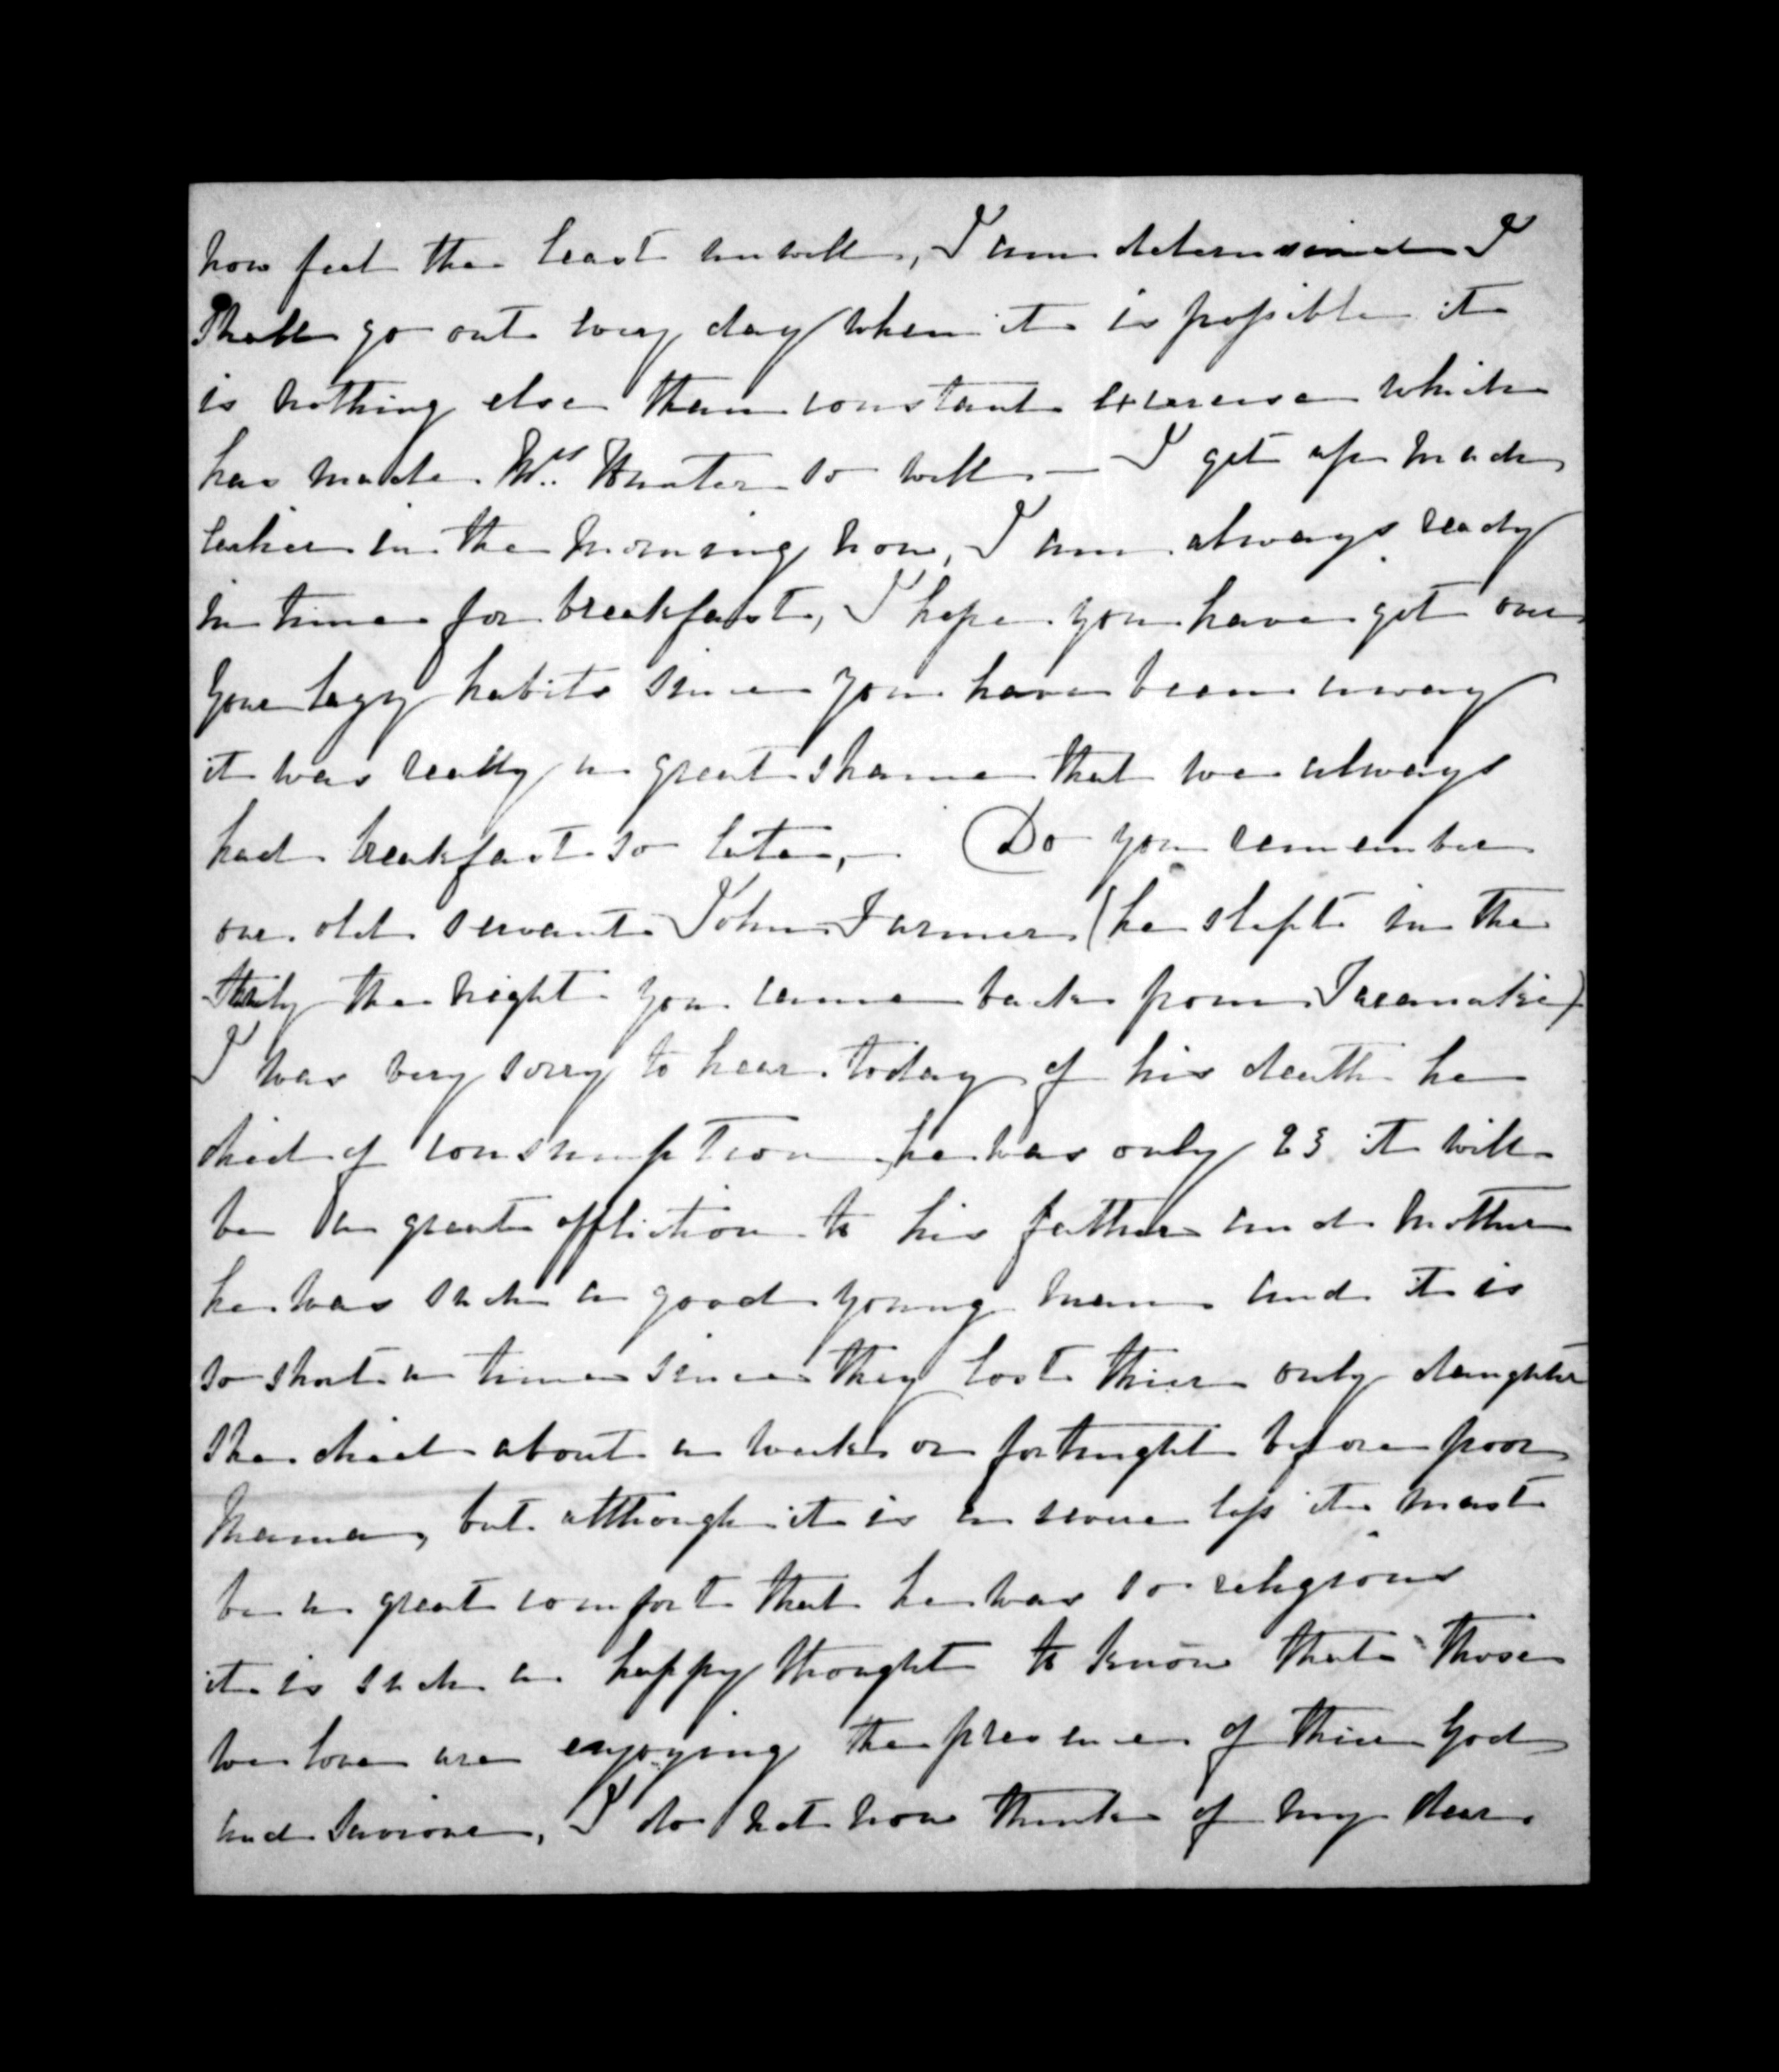 now feel the least unwell, I am determined I
shall go out every day when it is possible it
is nothing else than constant exercise which
has made Mrs Hunter so well — I get up much
earlier in the morning now, I am always ready
in time for breakfast, I hope you have got over
your lazy habits since you have been away
it was really a great shame that we always
had breakfast so late, — Do you remember
our old servant John Farmer (he slept in the
the night you came back from Taranaki)
I was very sorry to hear today of his death he
died of consumption, he was only 23 it will
be a great affliction to his father and mother
he was such a good young man and it is
so short a time since they lost thier only daughter
She died about a week or fortnight before poor
Mama, but although it is a severe loss it must
be a great comfort that he was so religious
it is such a happy thought to know that those
we love are enjoying the presence of thier God
and Saviour, I do not now think of my dear